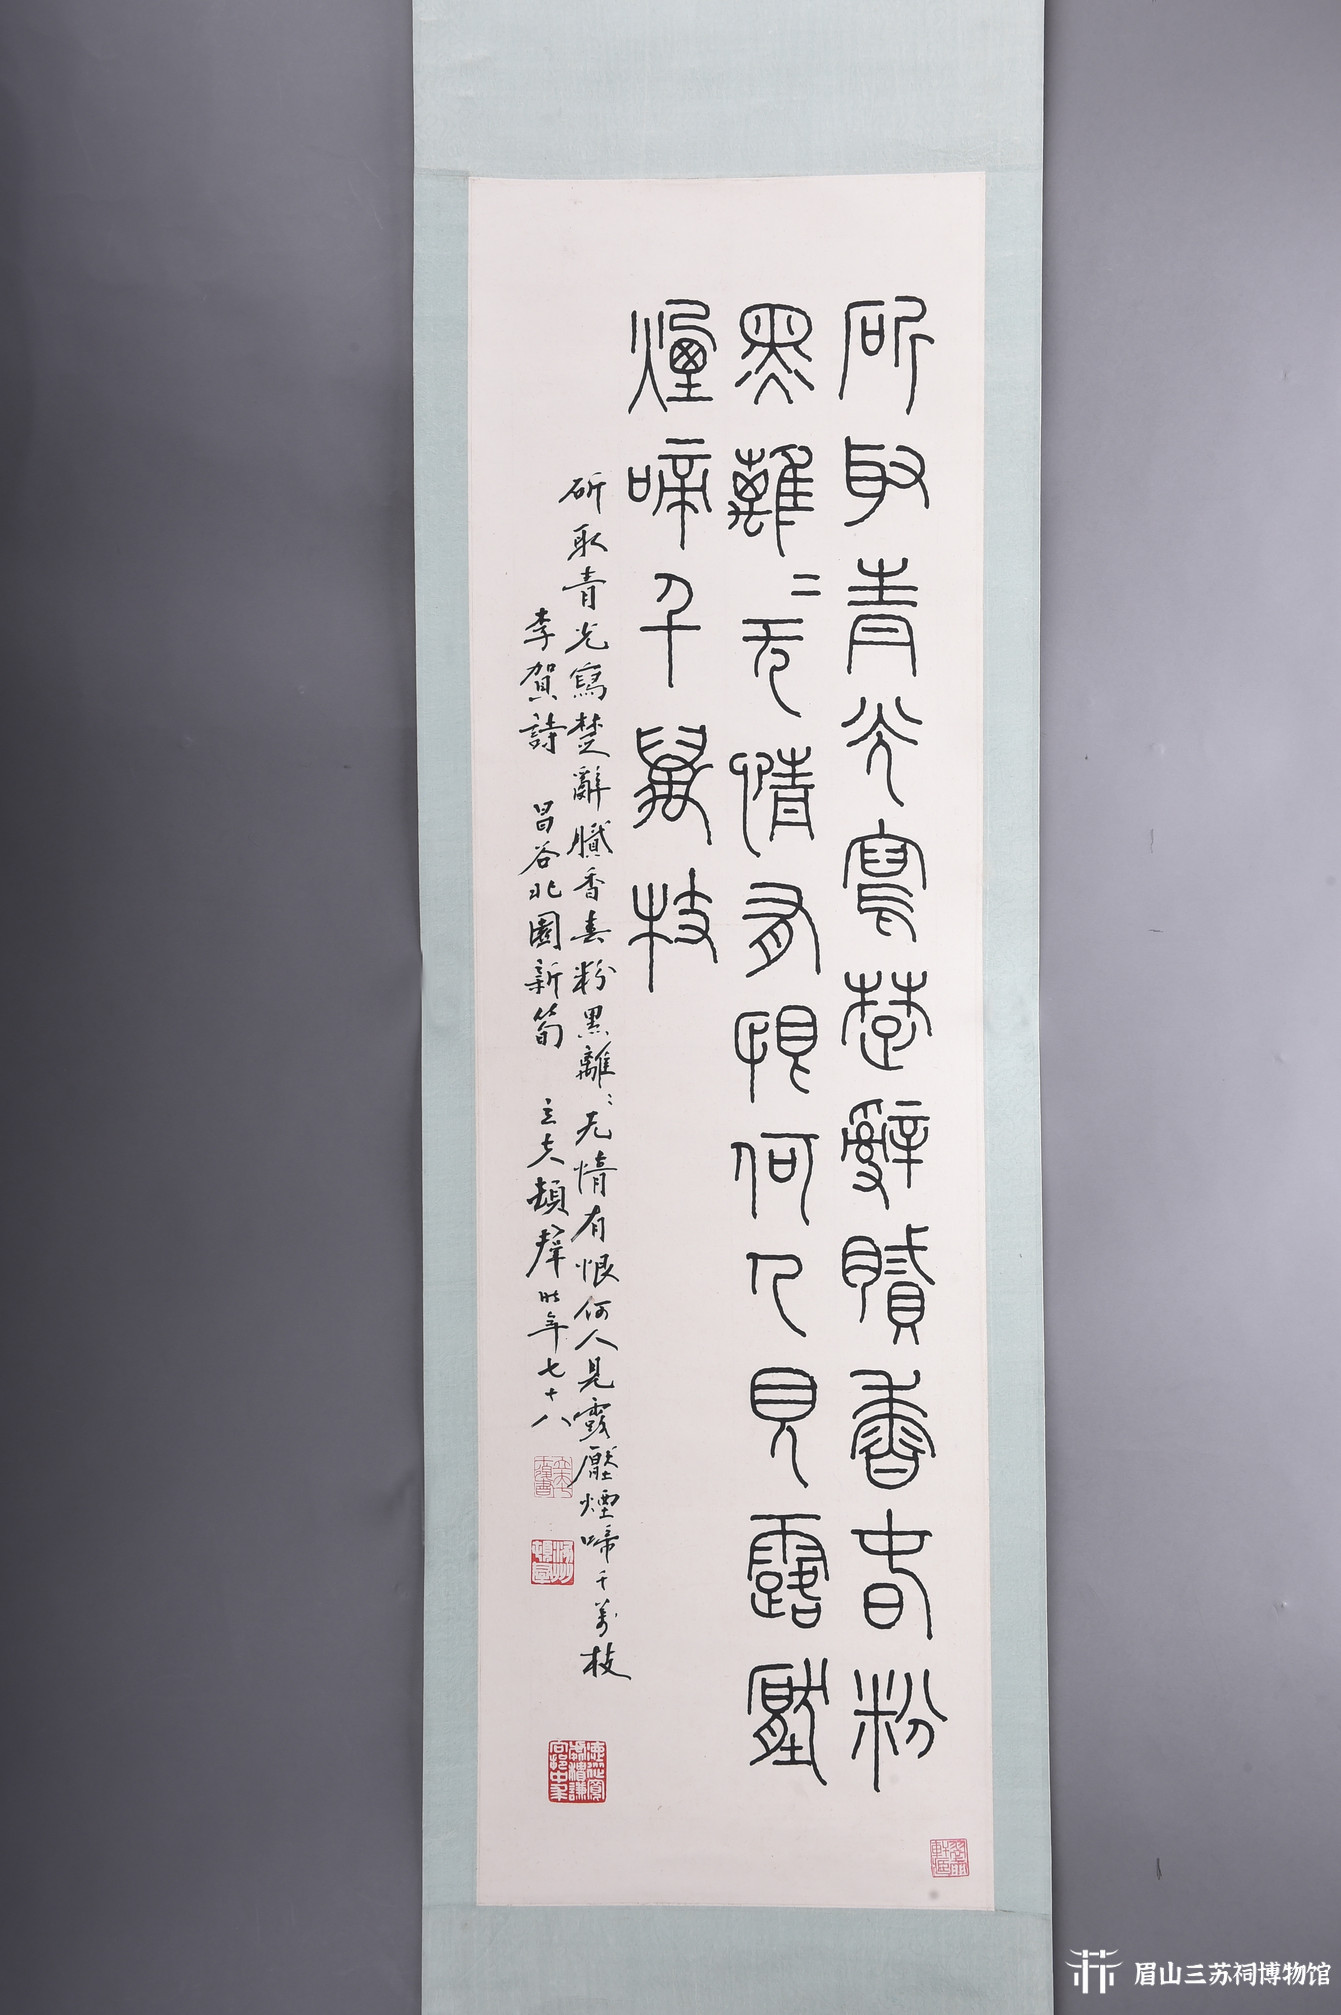 斫取青光寫楚辭膩香春粉
黑離〻无情有恨何人見露壓
煙啼千萬枝
斫取青光寫楚辭膩香春粉黑離〻无情有恨何人見露壓煙啼千萬枝
李賀詩 昌谷北園新筍 立夫頓群時年七十八
眉山三苏祠博物馆